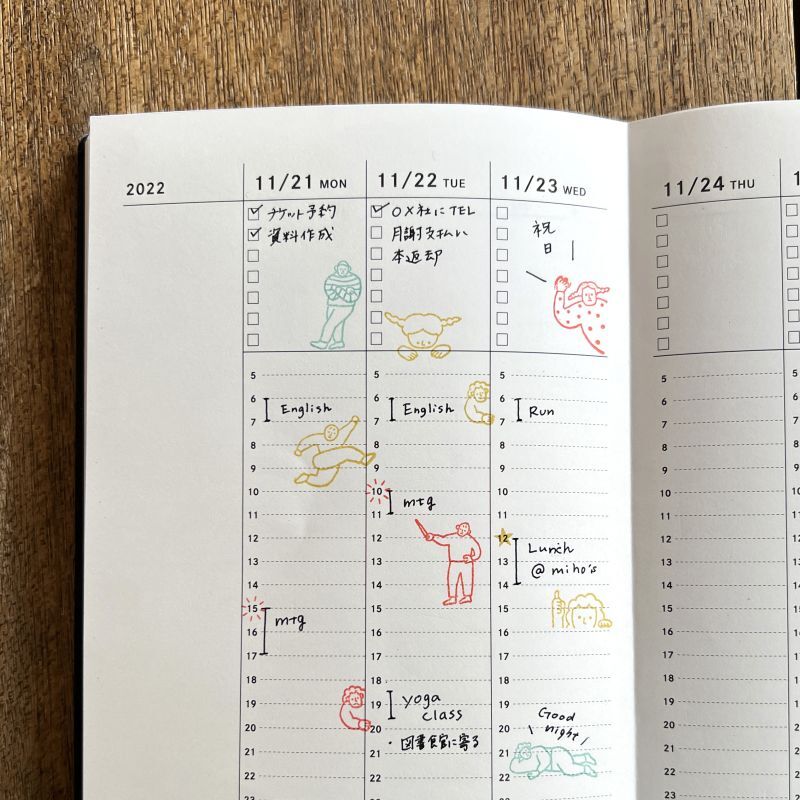 2022
11/21 MON
チケット予約
資料作成
5
6
7
8
9
10
11
12
13
14
15
16
17
18
19
20
21
22
23
English
mtg
11/22 TUE
OX社にTEL
月謝支払い
本返却
5
6
7
8
9
10
11
12
13
14
15
16
17
18
19
20
21
22
English
mtg
yoga
class
・図書館に寄る
11/23 WED
祝
日
5
6
7
8
9
10
11
12
13
14
15
16
17
18
19
20
21
22
23
Run
Lunch
@ miho's
Good
night
11/24 THU
5
6
7
8
9
10
11
12
13
14
15
16
17
18
19
20
21
22
23
1